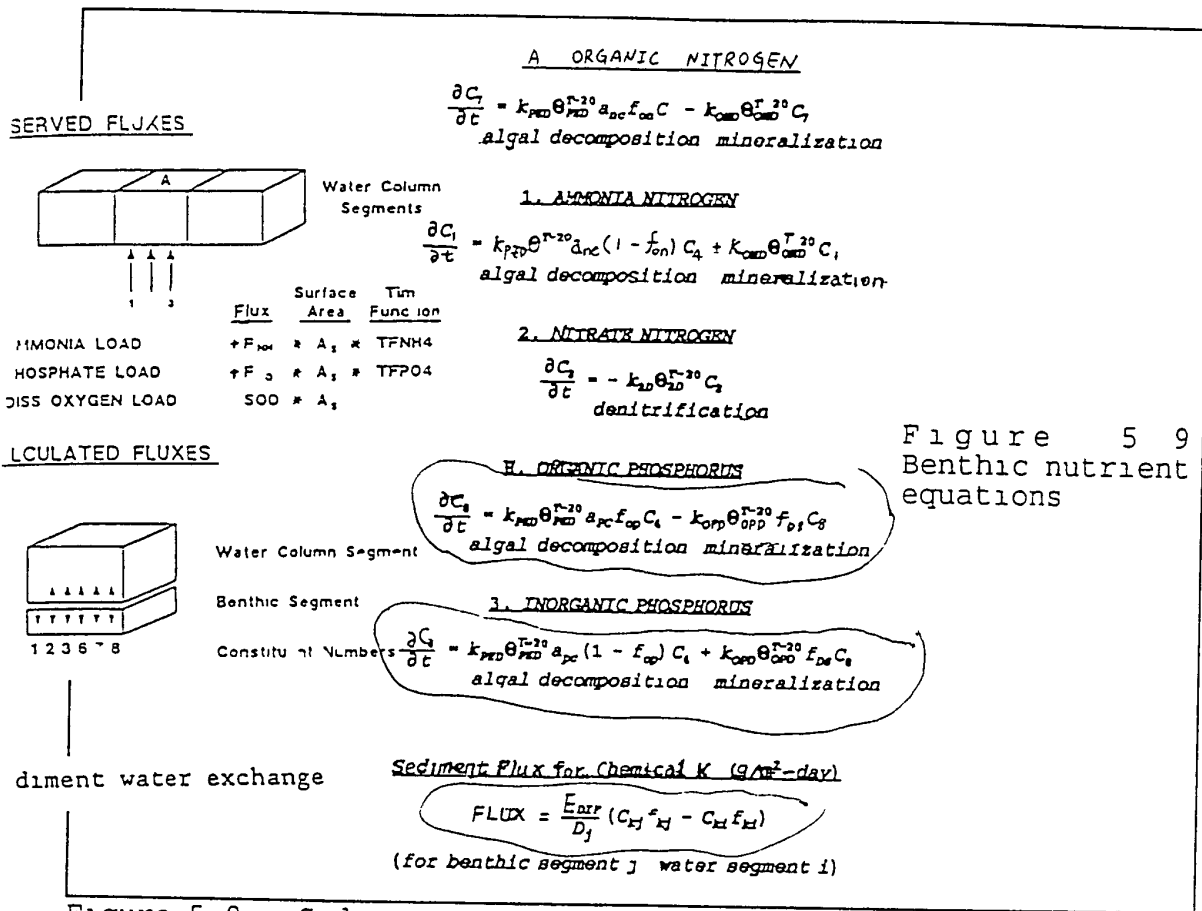 SERVED FLUXES
A
Water Column
Segments
1 3
Flux Surface Area Tim Function
MMONIA LOAD +F * A_s * TFNH4
HOSPHATE LOAD +F * A_s * TFPO4
DISS OXYGEN LOAD SOD * A_s
LCULATED FLUXES
Water Column Segment
Benthic Segment
1 2 3 6 7 8
Constitu nt Numbers
diment water exchange
A ORGANIC NITROGEN
∂C_7/∂t = k_PZD Θ_PZD^T-20 a_nc f_on C - k_OND Θ_OND^T-20 C_7
algal decomposition mineralization
1. AMMONIA NITROGEN
∂C_1/∂t = k_PZD Θ^T-20 a_nc (1 - f_on) C_4 + k_OND Θ_OND^T-20 C_1
algal decomposition mineralization
2. NITRATE NITROGEN
∂C_2/∂t = - k_2D Θ_2D^T-20 C_2
denitrification
H. ORGANIC PHOSPHORUS
∂C_8/∂t = k_PZD Θ_PZD^T-20 a_PC f_op C_4 - k_OPD Θ_OPD^T-20 f_D8 C_8
algal decomposition mineralization
3. INORGANIC PHOSPHORUS
∂C_3/∂t = k_PZD Θ_PZD^T-20 a_pc (1 - f_op) C_4 + k_OPD Θ_OPD^T-20 f_D8 C_8
algal decomposition mineralization
Sediment Flux for Chemical K (g/m²-day)
FLUX = E_DIF/D_j (C_kj f_kj - C_ki f_ki)
(for benthic segment j water segment i)
Figure 5 9
Benthic nutrient
equations
Figure 5 9